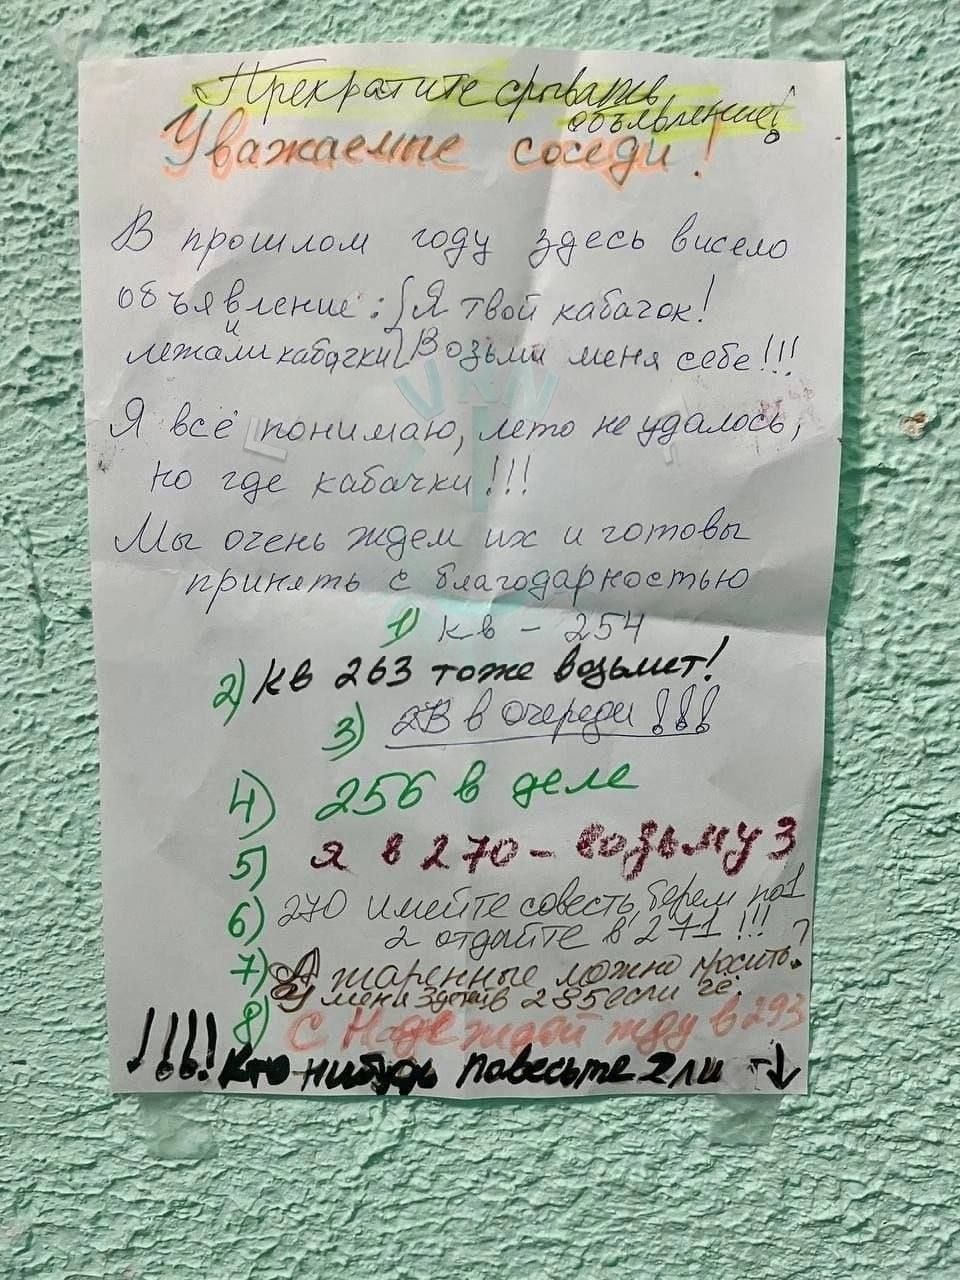 Прекратите срывать
объявление!
Уважаемые соседи!
В прошлом году здесь висело
объявление: Я твой кабачок!
и
лежали кабачки Возьми меня себе!!!
VRN
Я всё понимаю, лето не удалось,
но где кабачки!!!
Мы очень ждем их и готовы
принять с благодарностью
1) кв - 254
2) Кв 263 тоже возьмет!
3) 2В в очереди!!!
4) 256 в деле
5) Я в 270 - возьму 3
6) 270 имейте совесть, берем по 1
2 отдайте в 271!!!
7) А жаренные можно просить?
У меня 235 если чё.
8) С Надеждой жду в 293
!!!! Кто нибудь повесьте 2 ли